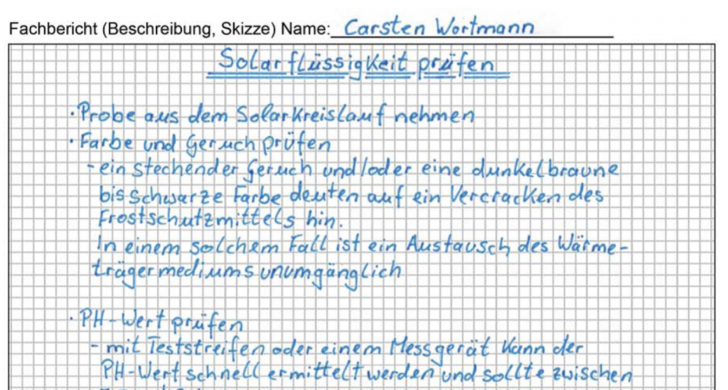 Fachbericht (Beschreibung, Skizze) Name: Carsten Wortmann
Solarflüssigkeit prüfen
· Probe aus dem Solarkreislauf nehmen
· Farbe und Geruch prüfen
- ein stechender Geruch und/oder eine dunkelbraune
bis schwarze Farbe deuten auf ein Vercracken des
Frostschutzmittels hin.
In einem solchem Fall ist ein Austausch des Wärme-
trägermediums unumgänglich
· PH-Wert prüfen
- mit Teststreifen oder einem Messgerät kann der
PH-Wert schnell ermittelt werden und sollte zwischen